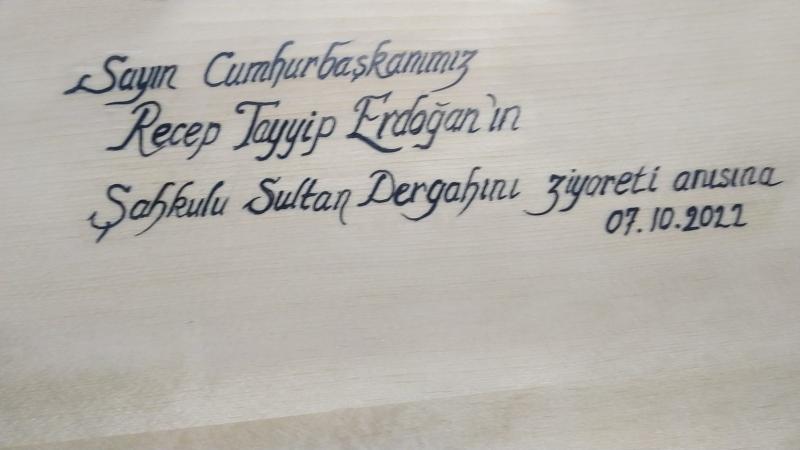 Sayın Cumhurbaşkanımız
Recep Tayyip Erdoğan'ın
Şahkulu Sultan Dergahını ziyareti anısına
07.10.2022